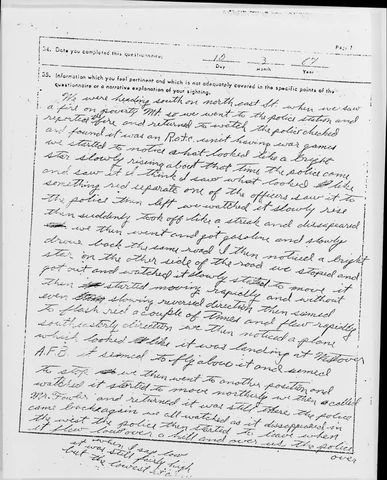 Page 7
34. Date you completed this questionnaire: 10 3 67
Day Month Year
35. Information which you feel pertinent and which is not adequately covered in the specific points of the
questionnaire or a narrative explanation of your sighting.
We were heading south on north east St. when we saw
a fire on poverty Mt. so we went to the police station and
reported fire and returned to watch the police checked
and found it was an R.o.t.c. unit having war games
we started to notice what looked like a bright
star slowly rising about that time the police came
and saw it I think I saw what looked like
something red separate one of the officers saw it to
the police then left we watched it slowly rose
then suddenly took off like a streak and dissapeared
we then went and got gasoline and slowly
drove back the same road I then noticed a bright
star on the other side of the road we stoped and
got out and watched it slowly started to move it
then started moving rapidly and without
even slowing reversed direction then seemed
to flash red a couple of times and flew rapidly
south easterly direction we then noticed a plane
which looked like it was landing at Westover
A.F.B. it seemed to fly above it and seemed
to stop we then went to another position and
watched it started to move northerly we then called
Mr. Fowler and returned it was still there the police
came back again we all watched as it dissapeared in
the west the police then started to leave when
it flew low over a hill and over us the police
over
when I say low
it was still fairly high
but the lowest